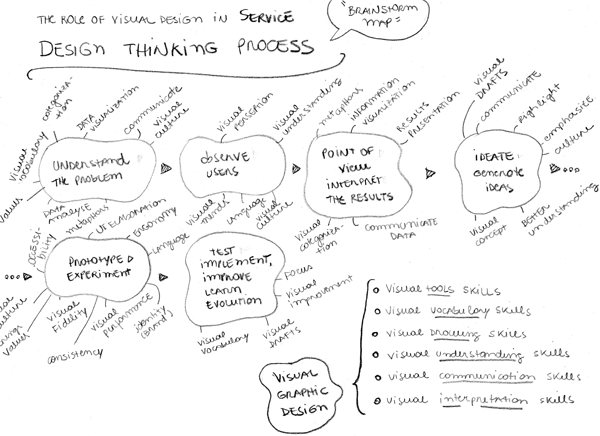 THE ROLE OF VISUAL DESIGN IN SERVICE
DESIGN THINKING PROCESS
"BRAINSTORM
MAP"
UNDERSTAND
THE PROBLEM
values
visual vocabulary
categoriza-
tion
DATA
visualization
communicate
visual
culture
DATA
ANALYSIS
metaphors
OBSERVE
USERS
visual
PERCEPTION
visual understanding
visual
trends
language
visual
culture
POINT OF
VIEW
INTERPRET
THE RESULTS
metaphors
INFORMATION
visualization
RESULTS
PRESENTATION
visual
categoriza-
tion
communicate
DATA
IDEATE
Generate
ideas
visual
DRAFTS
communicate
Highlight
emphasize
culture
visual
concept
BETTER
understanding
PROTOTYPE
EXPERIMENT
ACCESSI-
bility
UI ELABORATION
ERGONOMY
Language
culture
values
visual
Fidelity
consistency
visual
performance
identity
(Brand)
TEST
IMPLEMENT,
IMPROVE
LEARN
EVOLUTION
FOCUS
visual
improvement
visual
vocabulary
visual
DRAFTS
VISUAL
GRAPHIC
DESIGN
visual tools skills
visual vocabulary skills
visual drawing skills
visual understanding skills
visual communication skills
visual interpretation skills